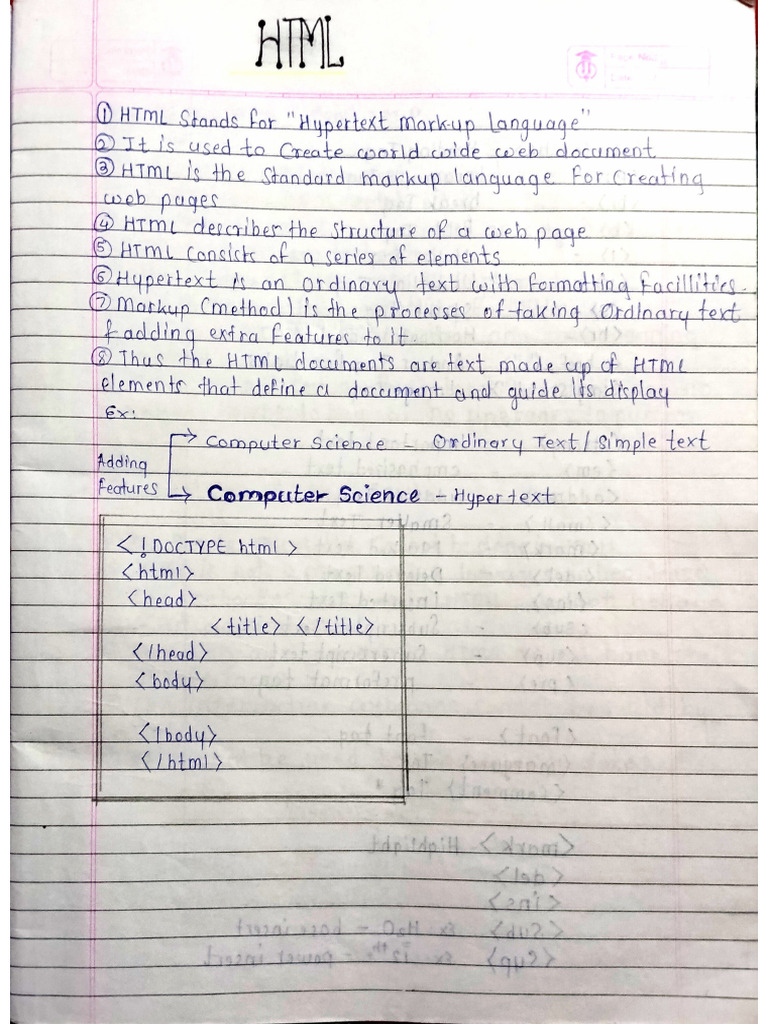 HTML
① HTML Stands for "Hypertext Markup Language"
② It is used to Create world wide web document
③ HTML is the Standard markup language For Creating
web pages
④ HTML describes the structure of a web page
⑤ HTML Consists of a series of elements
⑥ Hypertext is an ordinary text with formatting Facillities.
⑦ Markup (method) is the processes of taking Ordinary text
& adding extra Features to it.
⑧ Thus the HTML documents are text made up of HTML
elements that define a document and guide its display
Ex:
Computer Science - Ordinary Text / Simple text
Adding
Features
Computer Science - Hypertext
<!DOCTYPE html>
<html>
<head>
<title> </title>
</head>
<body>
</body>
</html>